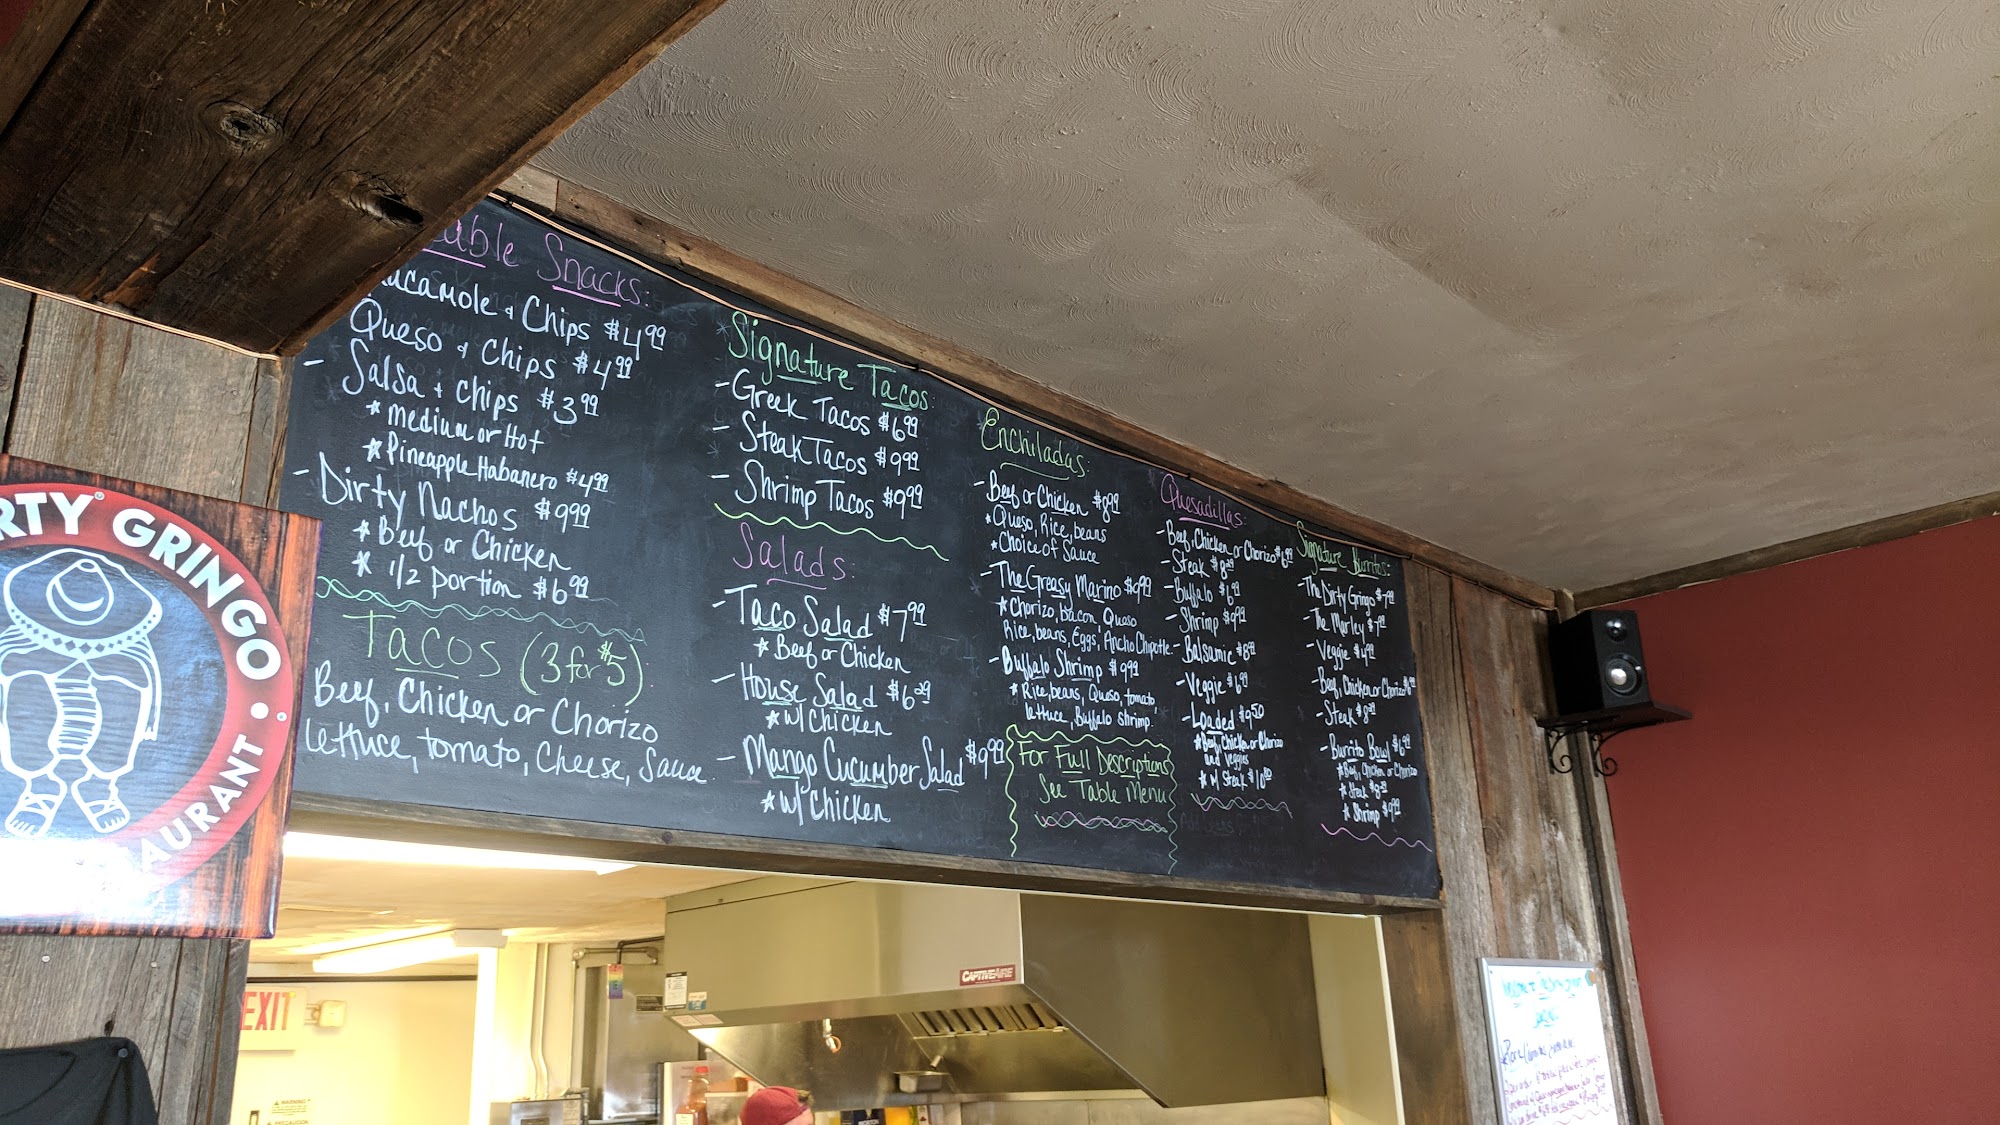 Snacks:
& Chips $4.99
Queso & Chips $4.99
- Salsa + Chips $3.99
* Medium or Hot
* Pineapple Habanero $4.99
- Dirty Nachos $9.99
* Beef or Chicken
* 1/2 portion $6.99
Tacos (3 for $5)
Beef, Chicken or Chorizo
lettuce, tomato, Cheese, Sauce
* Signature Tacos:
- Greek Tacos $6.99
- Steak Tacos $9.99
- Shrimp Tacos $9.99
Salads:
- Taco Salad $7.99
* Beef or Chicken
- House Salad $6.29
* w/ Chicken
- Mango Cucumber Salad $9.99
* w/ Chicken
Enchiladas:
- Beef or Chicken $8.99
* Queso, Rice, beans
* Choice of Sauce
- The Greasy Marino $9.99
* Chorizo, bacon, Queso
Rice, beans, Eggs, Ancho Chipotle
- Buffalo Shrimp $9.99
* Rice, beans, Queso, tomato,
lettuce, Buffalo Shrimp.
For Full Descriptions
See Table Menu
Quesadillas:
- Beef, Chicken or Chorizo $6.99
- Steak
- Buffalo $6.99
- Shrimp $9.99
- Balsamic
- Veggie $6.99
- Loaded $9.50
* Beef, Chicken or Chorizo
and veggies
* w/ Steak
Signature Burritos:
- The Dirty Gringo $7.99
- The Marley $7.99
- Veggie $4.99
- Beef, Chicken or Chorizo
- Steak
- Burrito Bowl $6.99
* Beef, Chicken or Chorizo
* Steak
* Shrimp $9.99
GRINGO
EXIT
CAPTIVEAIRE